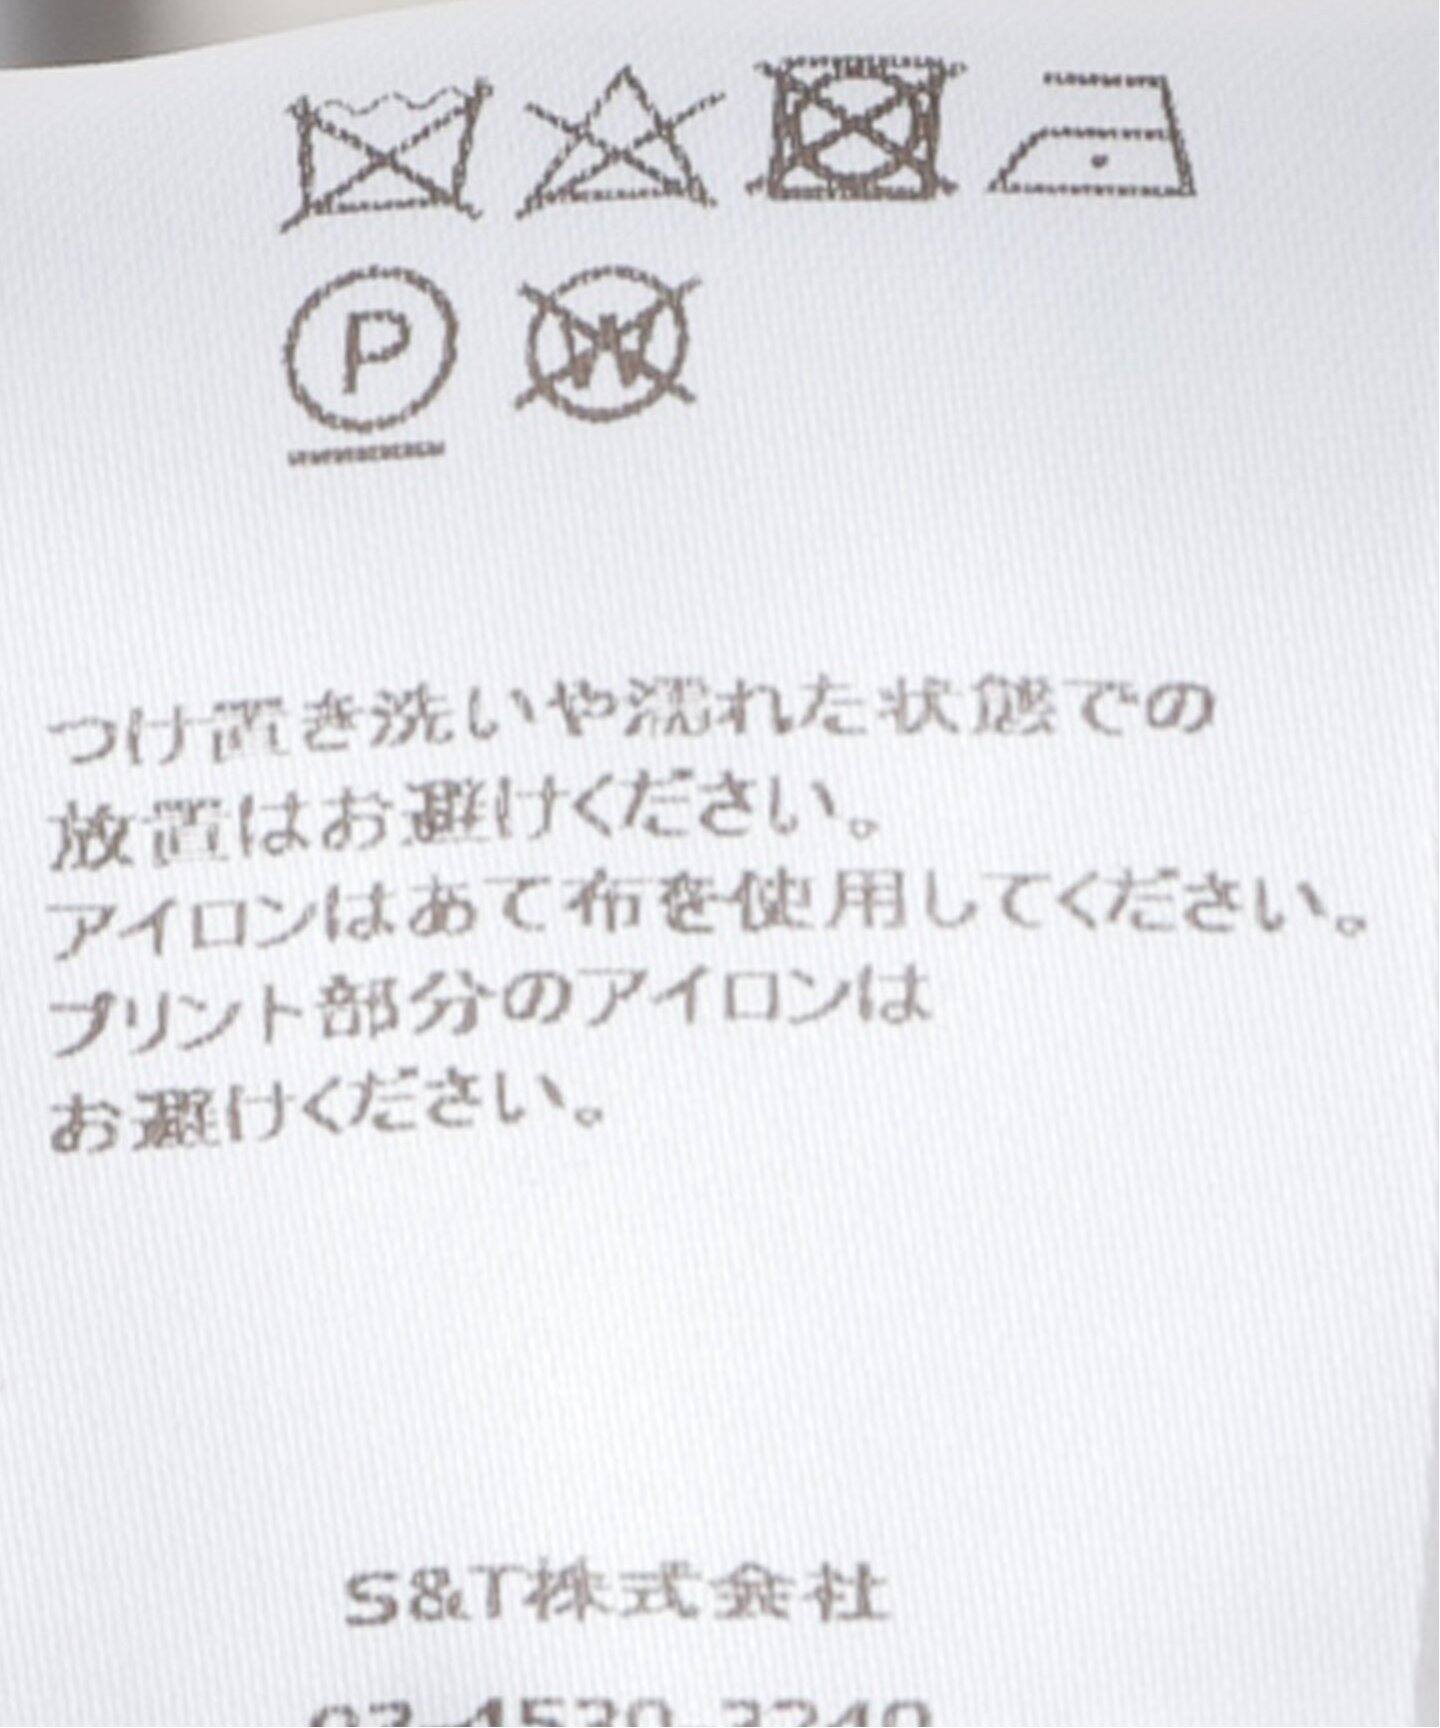 P
W
つけ置き洗いや濡れた状態での
放置はお避けください。
アイロンはあて布を使用してください。
プリント部分のアイロンは
お避けください。
S&T株式会社
03-4530-3240